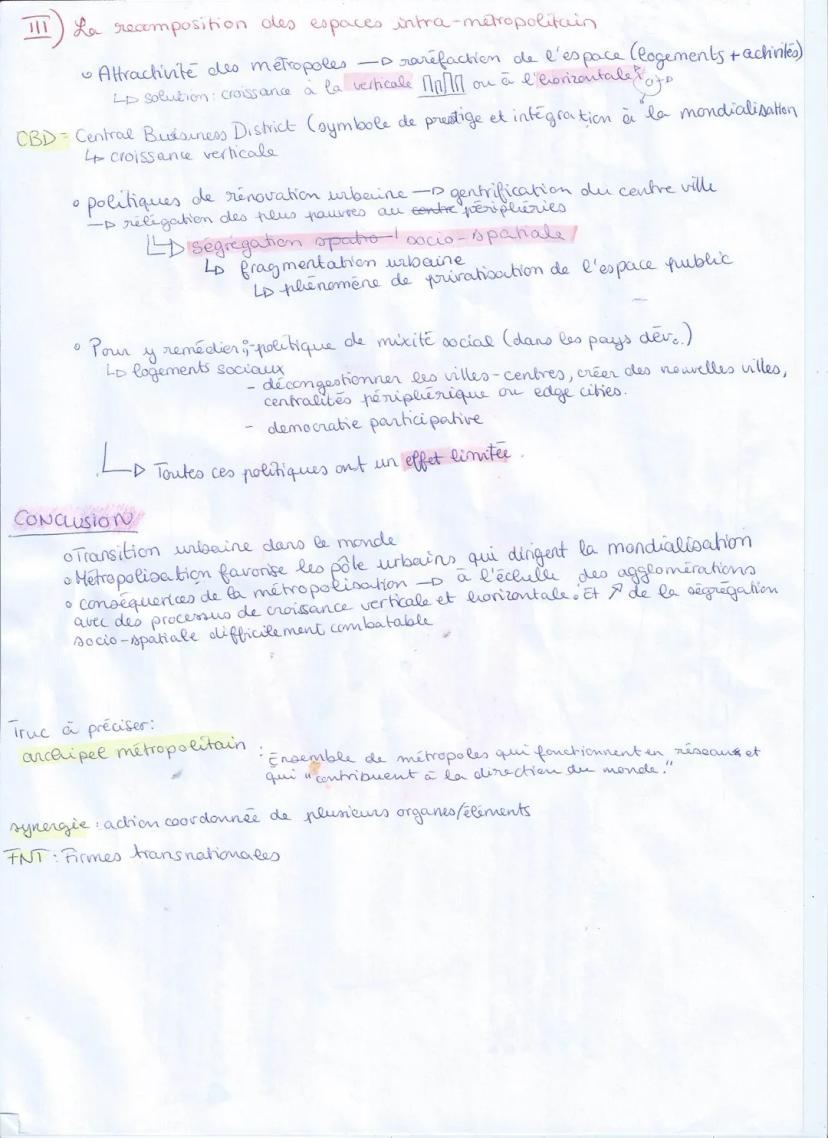 III) La recomposition des espaces intra-métropolitain
Attractivité des métropoles → raréfaction de l'espace (logements + activités)
↳ solution : croissance à la verticale ou à l'horizontale
CBD = Central Buisiness District (symbole de prestige et intégration à la mondialisation
↳ croissance verticale
politiques de rénovation urbaine → gentrification du centre ville
→ relégation des plus pauvres au centre périphéries
↳ ségrégation spatio socio-spatiale
↳ fragmentation urbaine
↳ phénomène de privatisation de l'espace public
Pour y remédier : - politique de mixité social (dans les pays dév.)
↳ logements sociaux
- décongestionner les villes-centres, créer des nouvelles villes,
centralités périphérique ou edge cities.
- democratie participative
↳ Toutes ces politiques ont un effet limitée.
CONCLUSION
Transition urbaine dans le monde
Métropolisation favorise les pôle urbains qui dirigent la mondialisation
conséquences de la métropolisation → à l'échelle des agglomérations
avec des processus de croissance verticale et horizontale. Et ↗ de la ségrégation
socio-spatiale difficilement combatable
Truc à préciser :
archipel métropolitain : Ensemble de métropoles qui fonctionnent en réseaux et
qui "contribuent à la direction du monde."
synergie : action coordonnée de plusieurs organes/éléments
FNT : Firmes transnationales